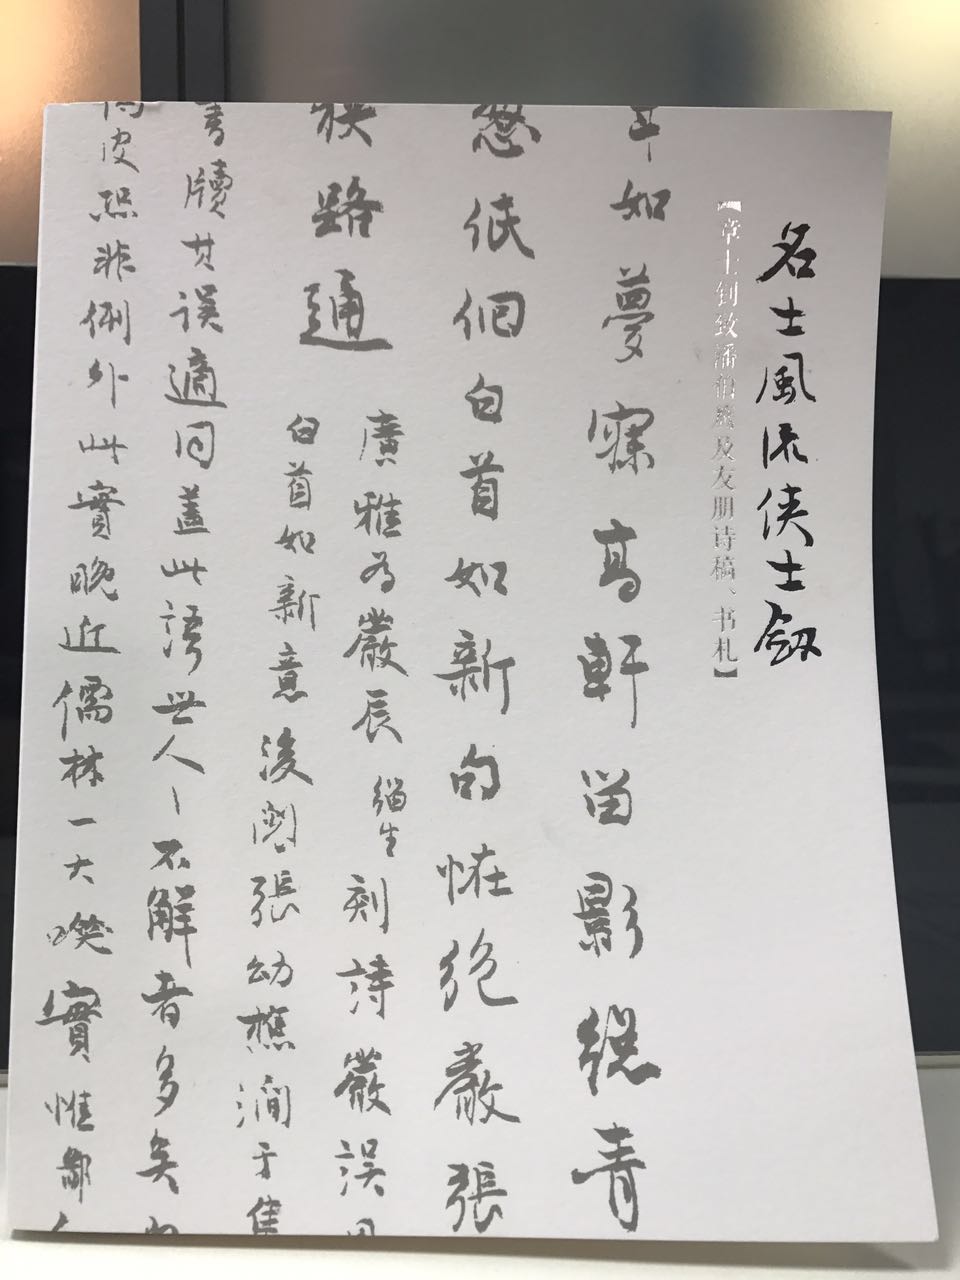 名士風流侠士劔
【章士钊致潘伯鹰及友朋诗稿、书札】
年如夢寐高軒留影總青
愁低佪白首如新句恠絶嚴張
暎路通
廣雅為嚴辰緇生刻詩嚴誤用
白首如新意後閱張幼樵澗于集
書牘其误適同蓋此語世人丶不解者多矣
皮恐非例外此實晚近儒林一大噗實惟鄙